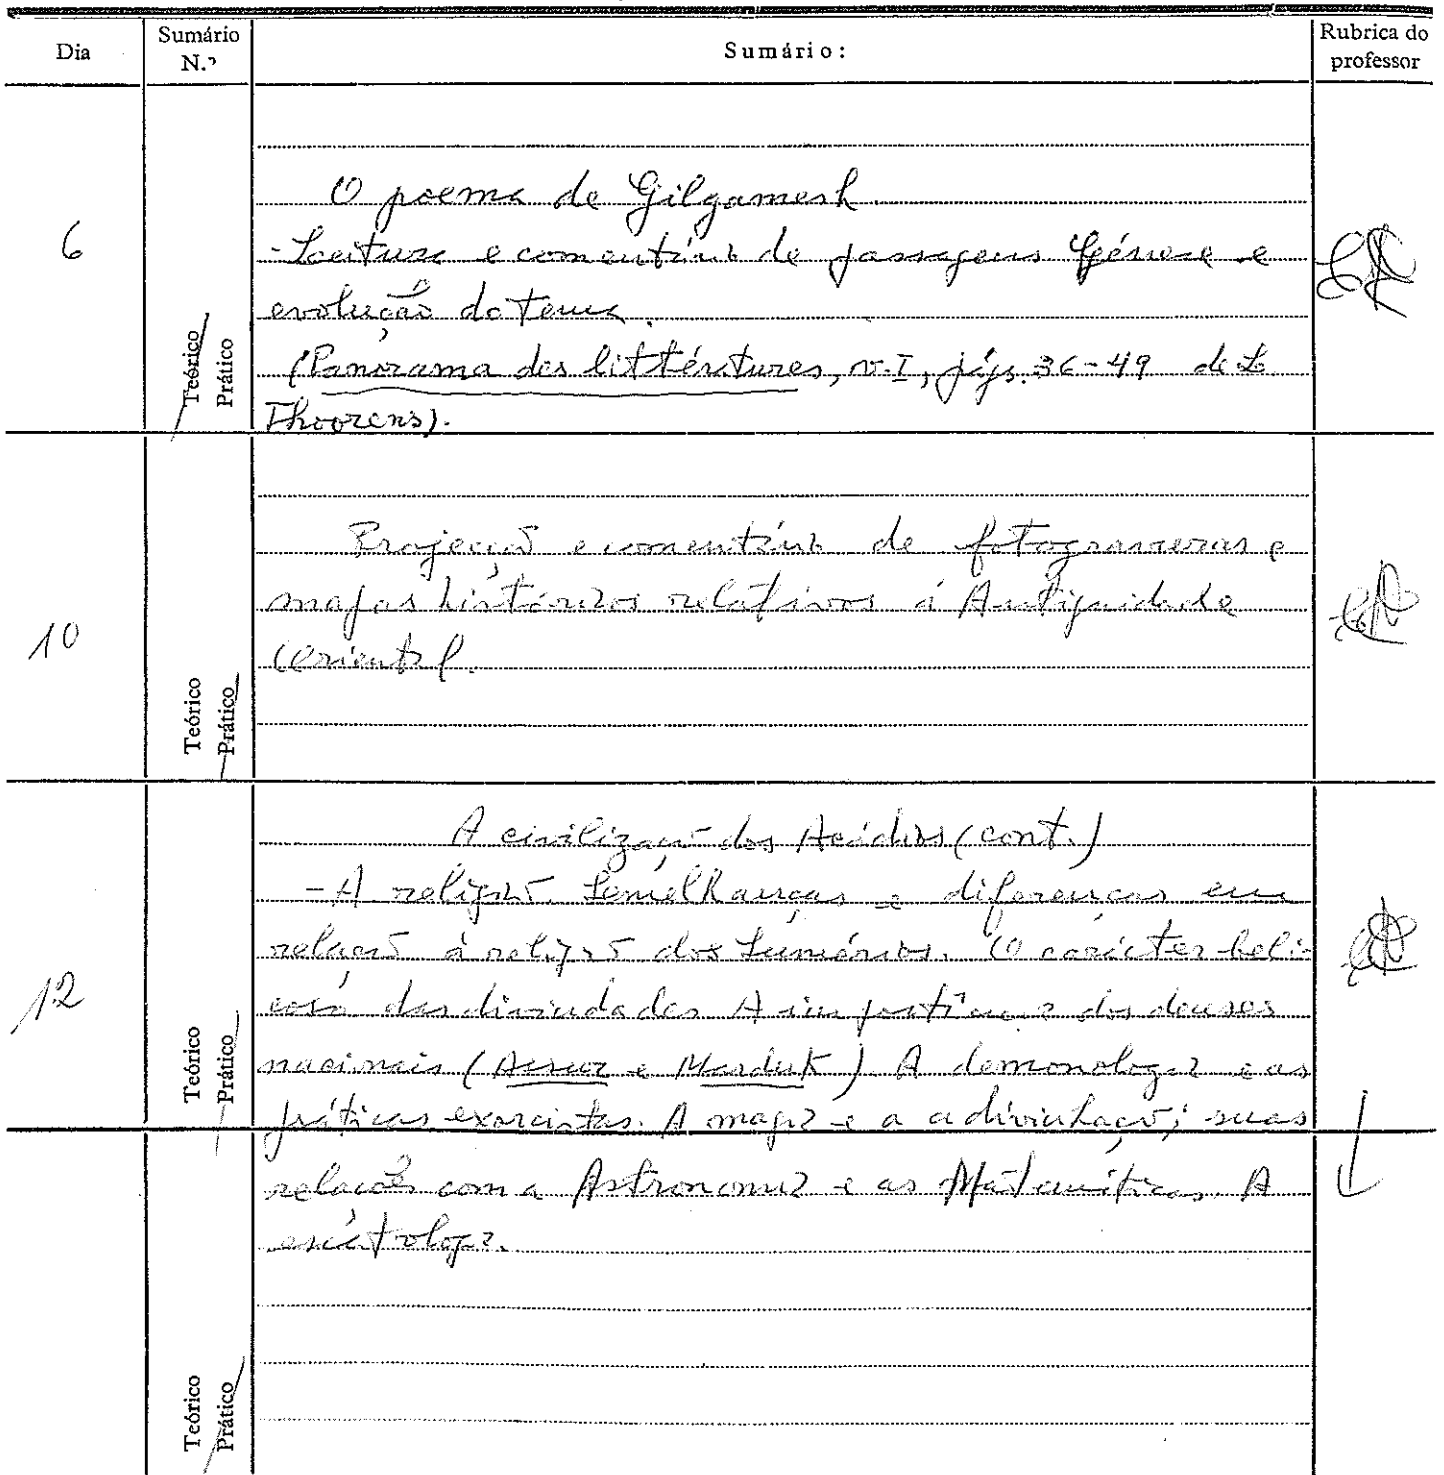 Dia
Sumário N.º
Sumário:
Rubrica do professor
6
Teórico
Prático
O poema de Gilgamesh.
- Leitura e comentário de passagens Génese e
evolução do tema.
(Panorama des littératures, v. I, págs. 36-49 de L.
Thoorens).
10
Teórico
Prático
Projecção e comentário de fotogravuras e
mapas históricos relativos à Antiguidade
Oriental.
12
Teórico
Prático
A civilização dos Acádios (cont.)
- A religião. Semelhanças e diferenças em
relação à religião dos Sumérios. O carácter beli-
coso das divindades A importância dos deuses
nacionais (Assur e Marduk). A demonologia e as
práticas exorcistas. A magia e a adivinhação; suas
relações com a Astronomia e as Matemáticas. A
escatologia.
Teórico
Prático